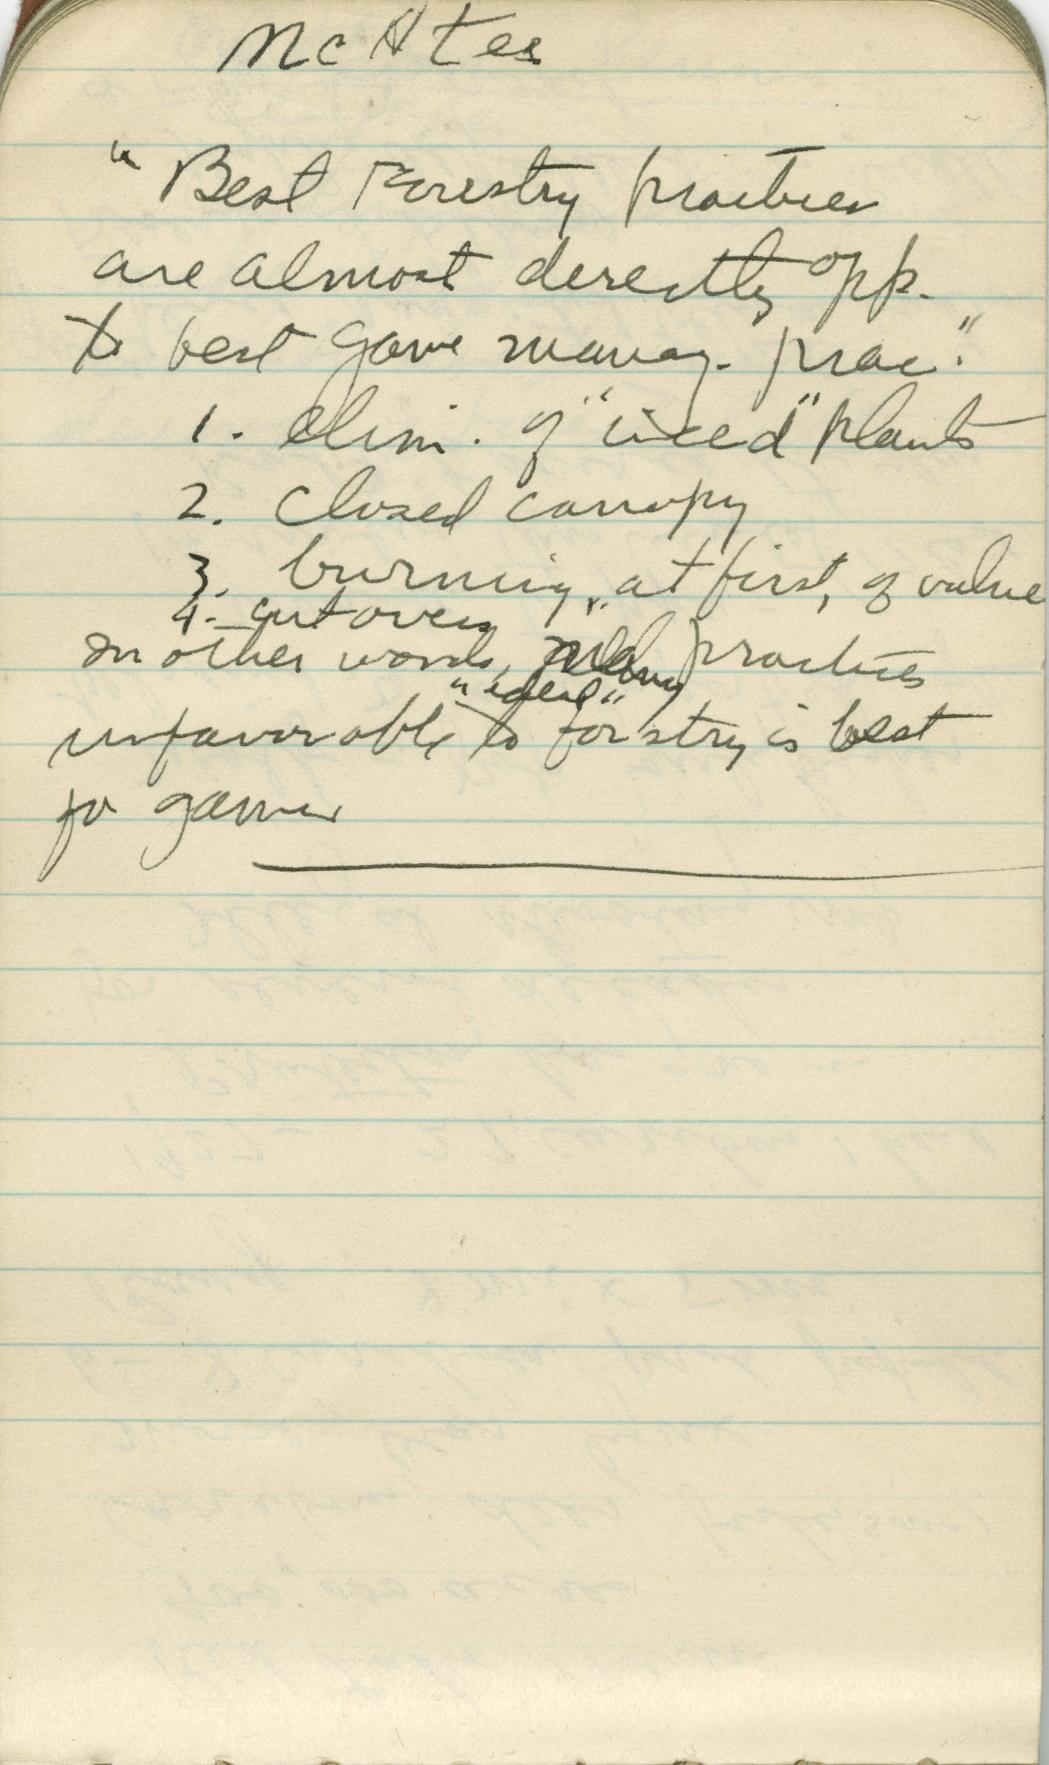 McAtee
"Best Forestry practices
are almost derectly opp.
to best game manag. prac."
1. elim. of "weed" plants
2. closed canopy
3. burning, at first, of value
4. cut overs
In other words, practices
"ideal"
unfavorable to forstry is best
for game